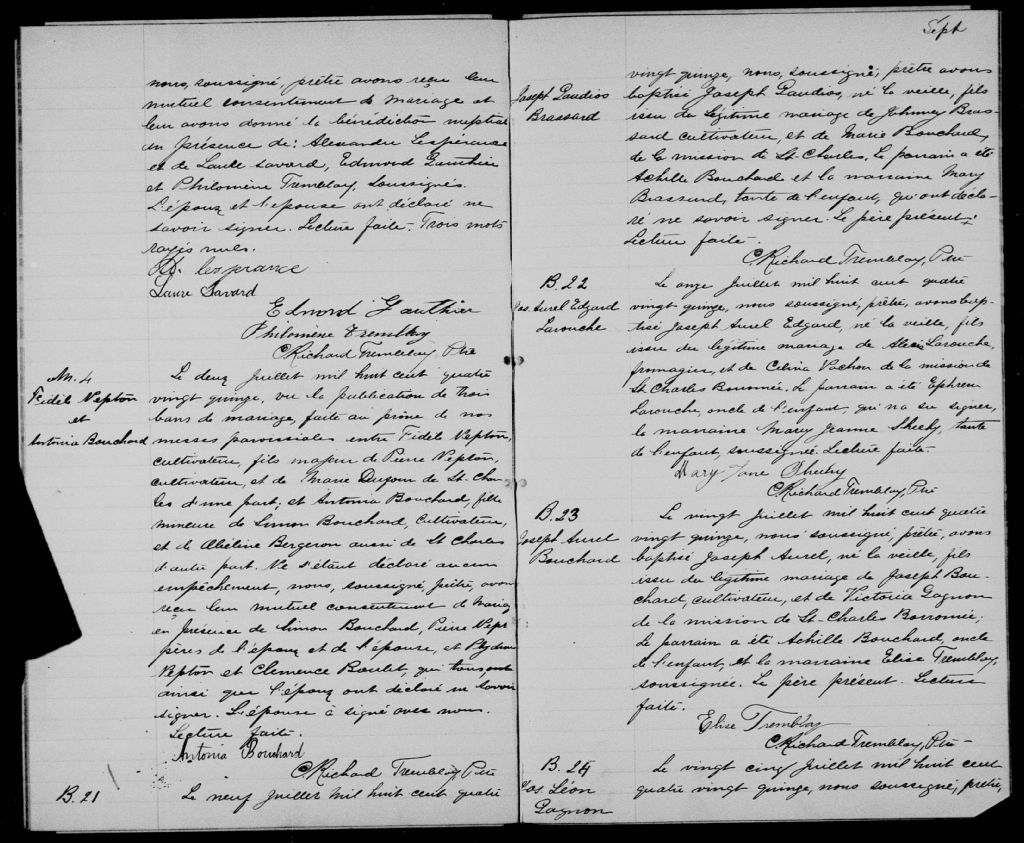 nous, soussigné, prêtre avons reçu leur
mutuel consentement de mariage et
leur avons donné la bénédiction nuptiale
en présence de: Alexandre Lespérance
et de Laure Savard, Edmond Gauthier
et Philomène Tremblay, soussignés.
L'époux et l'épouse ont déclaré ne
savoir signer. Lecture faite. Trois mots
rayés nuls.
A. lesprance
Laure Savard
Edmond Gauthier
Philomène Tremblay
C. Richard Tremblay, Ptre
M. 4
Fidèle Nepton
et
Antonia Bouchard
Le deux Juillet mil huit cent quatre
vingt quinze, vu la publication de trois
bans de mariage, faite au prône de nos
messes paroissiales entre Fidèle Nepton,
cultivateur, fils majeur de Pierre Nepton,
cultivateur, et de Marie Dufour de St-Char-
les d'une part, et Antonia Bouchard, fille
mineure de Simon Bouchard, Cultivateur,
et de Abéline Bergeron aussi de St Charles
d'autre part. Ne s'étant déclaré aucun
empêchement, nous, soussigné, prêtre, avons
reçu leur mutuel consentement de Mariage
en présence de Simon Bouchard, Pierre Nept
pères de l'époux et de l'épouse, et
Nepton et Clemence Boulet, qui tous
ainsi que l'époux ont déclaré ne savoir
signer. L'épouse à signé avec nous.
Lecture faite.
Antonia Bouchard
C. Richard Tremblay, Ptre
B. 21
Le neuf Juillet mil huit cent quatre
Sept
Joseph Gaudios
Brassard
vingt quinze, nous, soussigné, prêtre avons
baptisé Joseph Gaudios, né la veille, fils
issu du légitime mariage de Johnney Bras-
sard cultivateur, et de Marie Bouchard,
de la mission de St-Charles. Le parrain a été
Achille Bouchard et la marraine Mary
Brassard, tante de l'enfant, qui ont décla-
ré ne savoir signer. Le père présent.
Lecture faite.
C. Richard Tremblay, Ptre
B. 22
Jos. Aurel Edgard
Larouche
Le onze Juillet mil huit cent quatre
vingt quinze, nous soussigné, prêtre, avons bap-
tisé Joseph Aurel Edgard, né la veille, fils
issu du légitime mariage de Larouche,
fromagier, et de Celina Vachon de la mission de
St Charles Borromée. Le parrain a été Ephrem
Larouche, oncle de l'enfant, qui n'a su signer,
la marraine Mary Jeanne Sheehy, tante
de l'enfant, soussignée. Lecture faite.
Mary Jane Sheehy
C. Richard Tremblay, Ptre
B. 23
Joseph Aurel
Bouchard
Le vingt Juillet mil huit cent quatre
vingt quinze, nous soussigné, prêtre, avons
baptisé Joseph Aurel, né la veille, fils
issu du légitime mariage de Joseph Bou-
chard, cultivateur, et de Victoria Gagnon
de la mission de St-Charles Borromée;
Le parrain a été Achille Bouchard, oncle
de l'enfant, et la marraine Elise Tremblay,
soussignée. Le père présent. Lecture
faite.
Elise Tremblay
C. Richard Tremblay, Ptre
B. 24
Jos. Léon
Gagnon
Le vingt cinq Juillet mil huit cent
quatre vingt quinze, nous soussigné, prêtre,